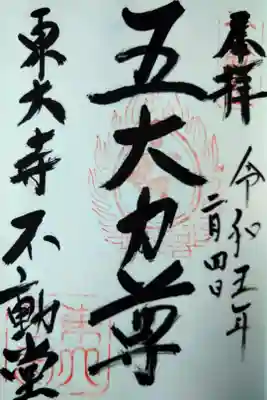 奉拝
令和五年
二月四日
五大力尊
東大寺 不動堂